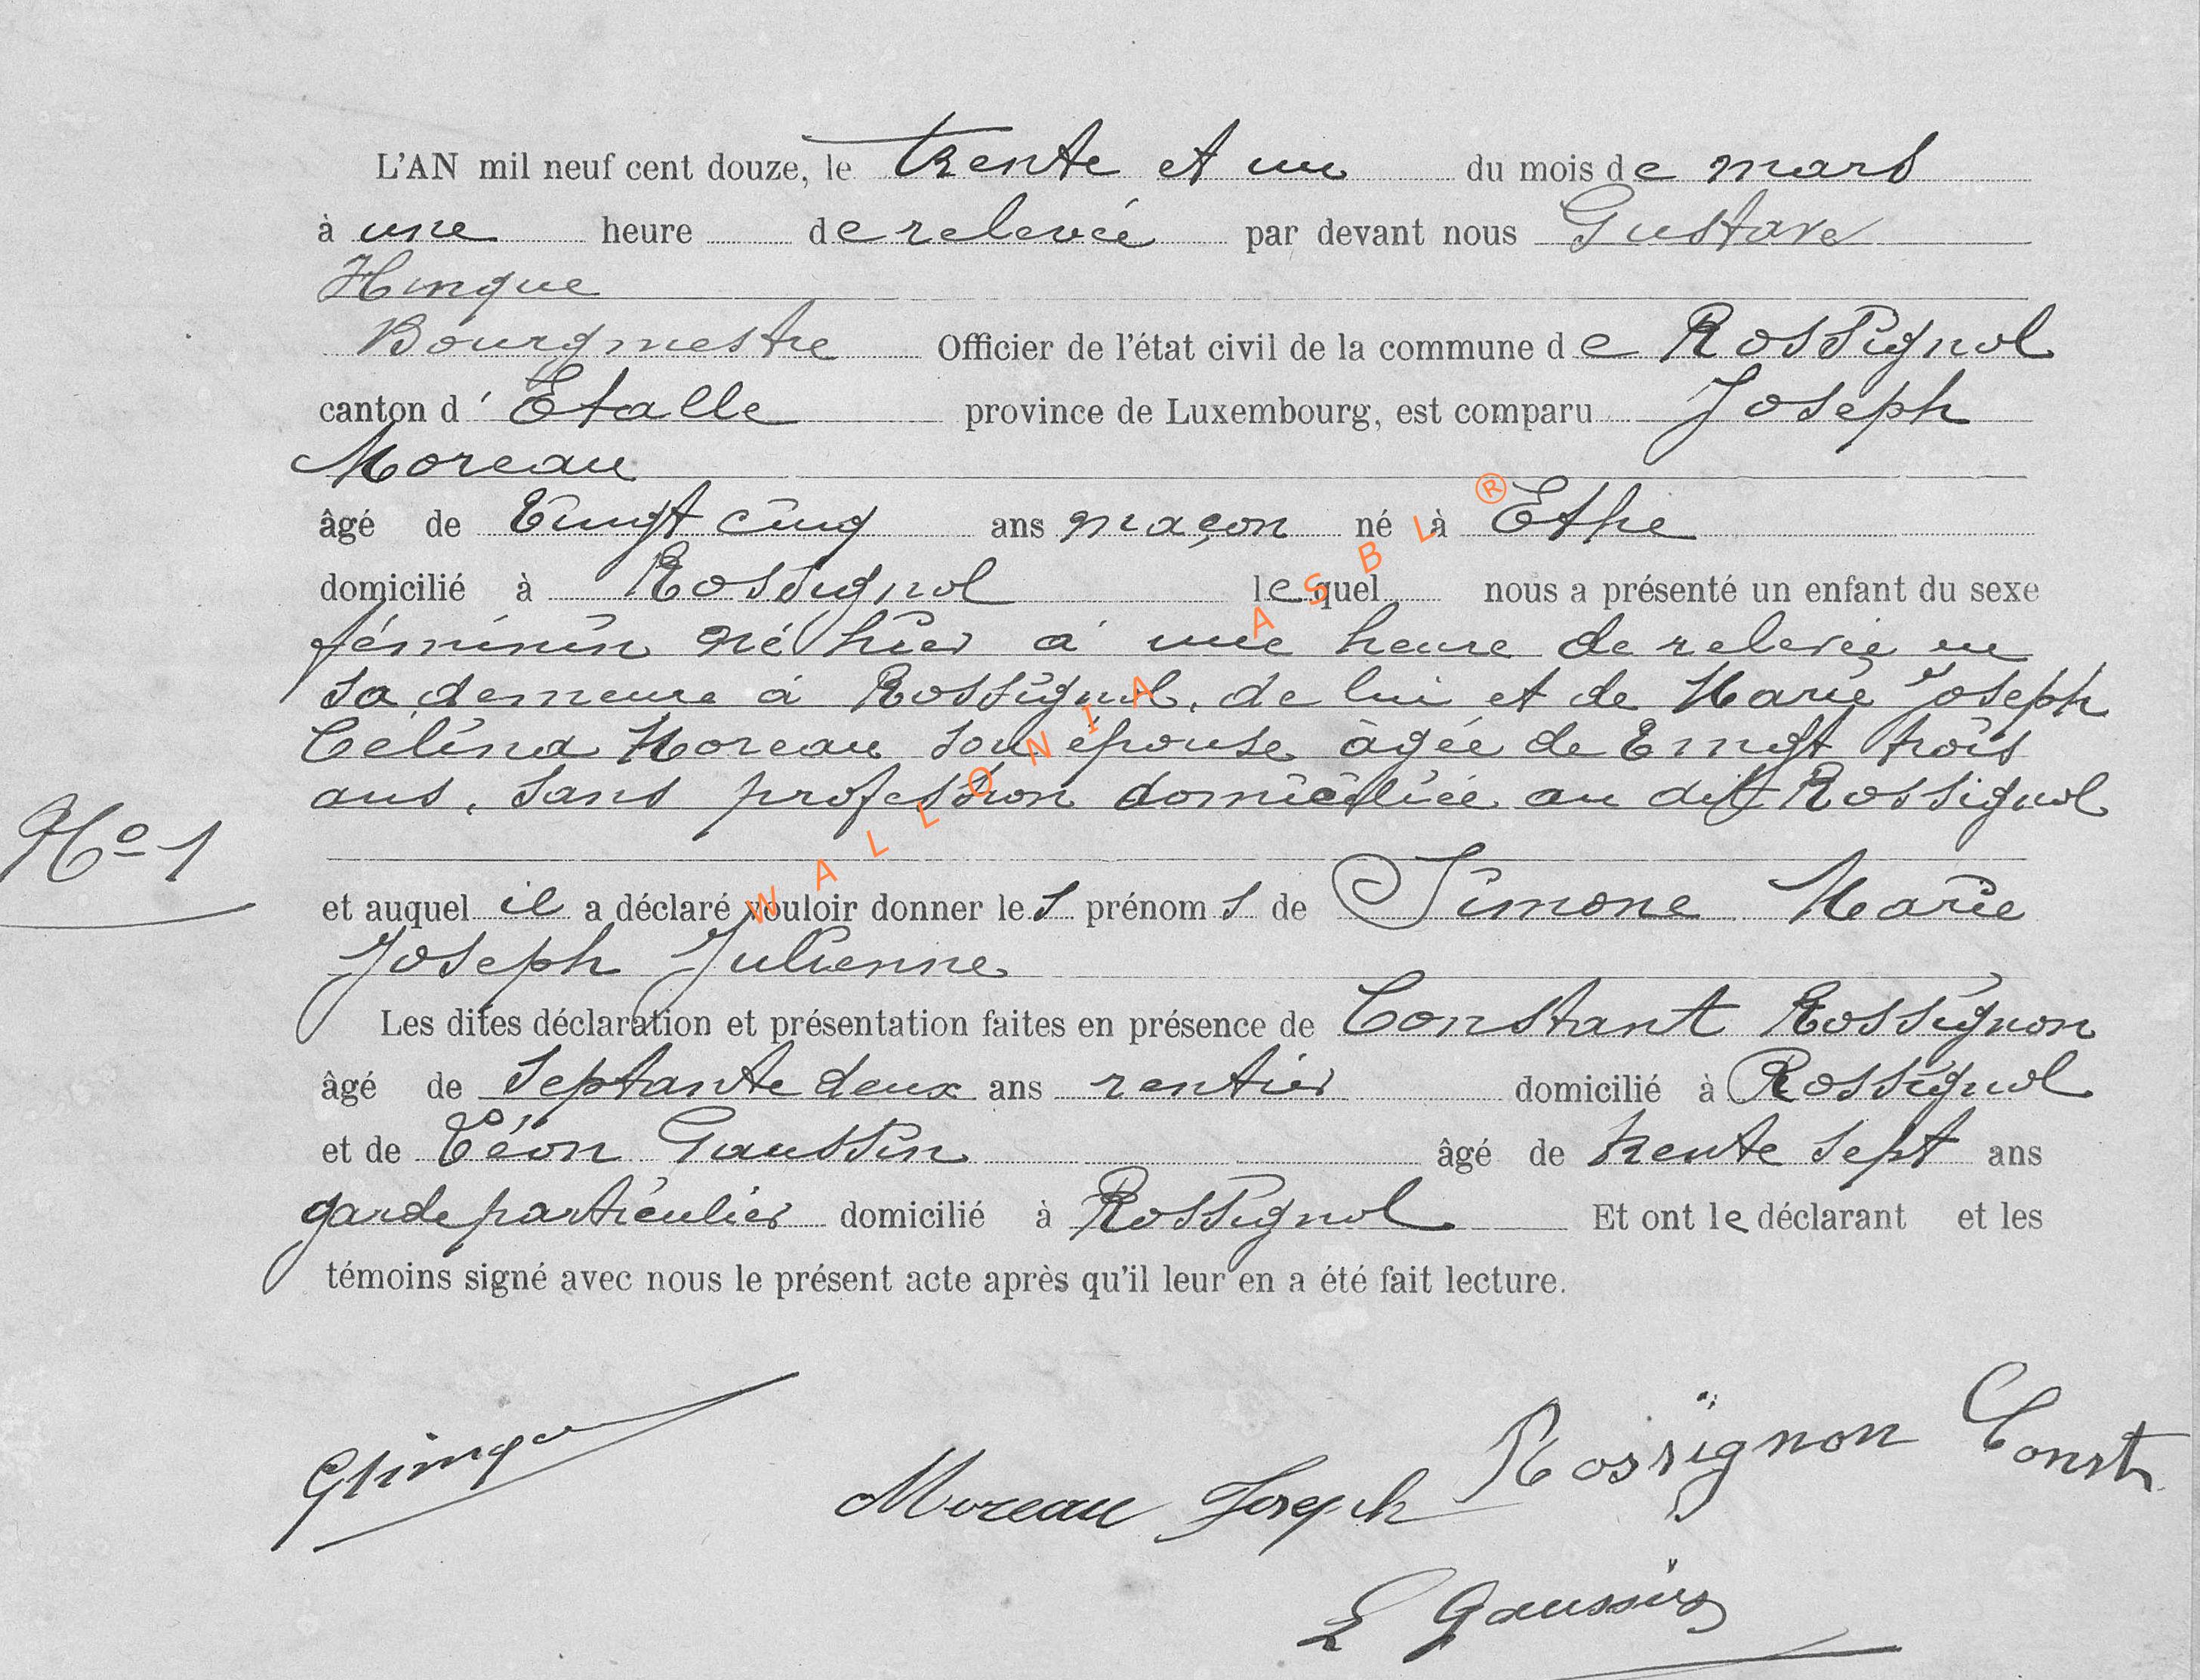 L'AN mil neuf cent douze, le trente et un du mois de mars
à une heure de relevée par devant nous Gustave
Hinque
Bourgmestre Officier de l'état civil de la commune de Rossignol
canton d'Etalle province de Luxembourg, est comparu Joseph
Moreau
âgé de Vingt cinq ans maçon né à Ethe
domicilié à Rossignol lequel nous a présenté un enfant du sexe
féminin né hier à une heure de relevée en
sa demeure à Rossignol, de lui et de Marie Joseph
Celina Moreau son épouse âgée de Vingt trois
ans, sans profession domiciliée au dit Rossignol
No 1
et auquel il a déclaré vouloir donner les prénoms de Simone Marie
Joseph Julienne
Les dites déclaration et présentation faites en présence de Constant Rossignon
âgé de Septante deux ans rentier domicilié à Rossignol
et de Léon Gaussin âgé de trente sept ans
garde particulier domicilié à Rossignol Et ont le déclarant et les
témoins signé avec nous le présent acte après qu'il leur en a été fait lecture.
GHinque
Moreau Joseph Rossignon Const
L Gaussin
WALLONIA ASBL ®